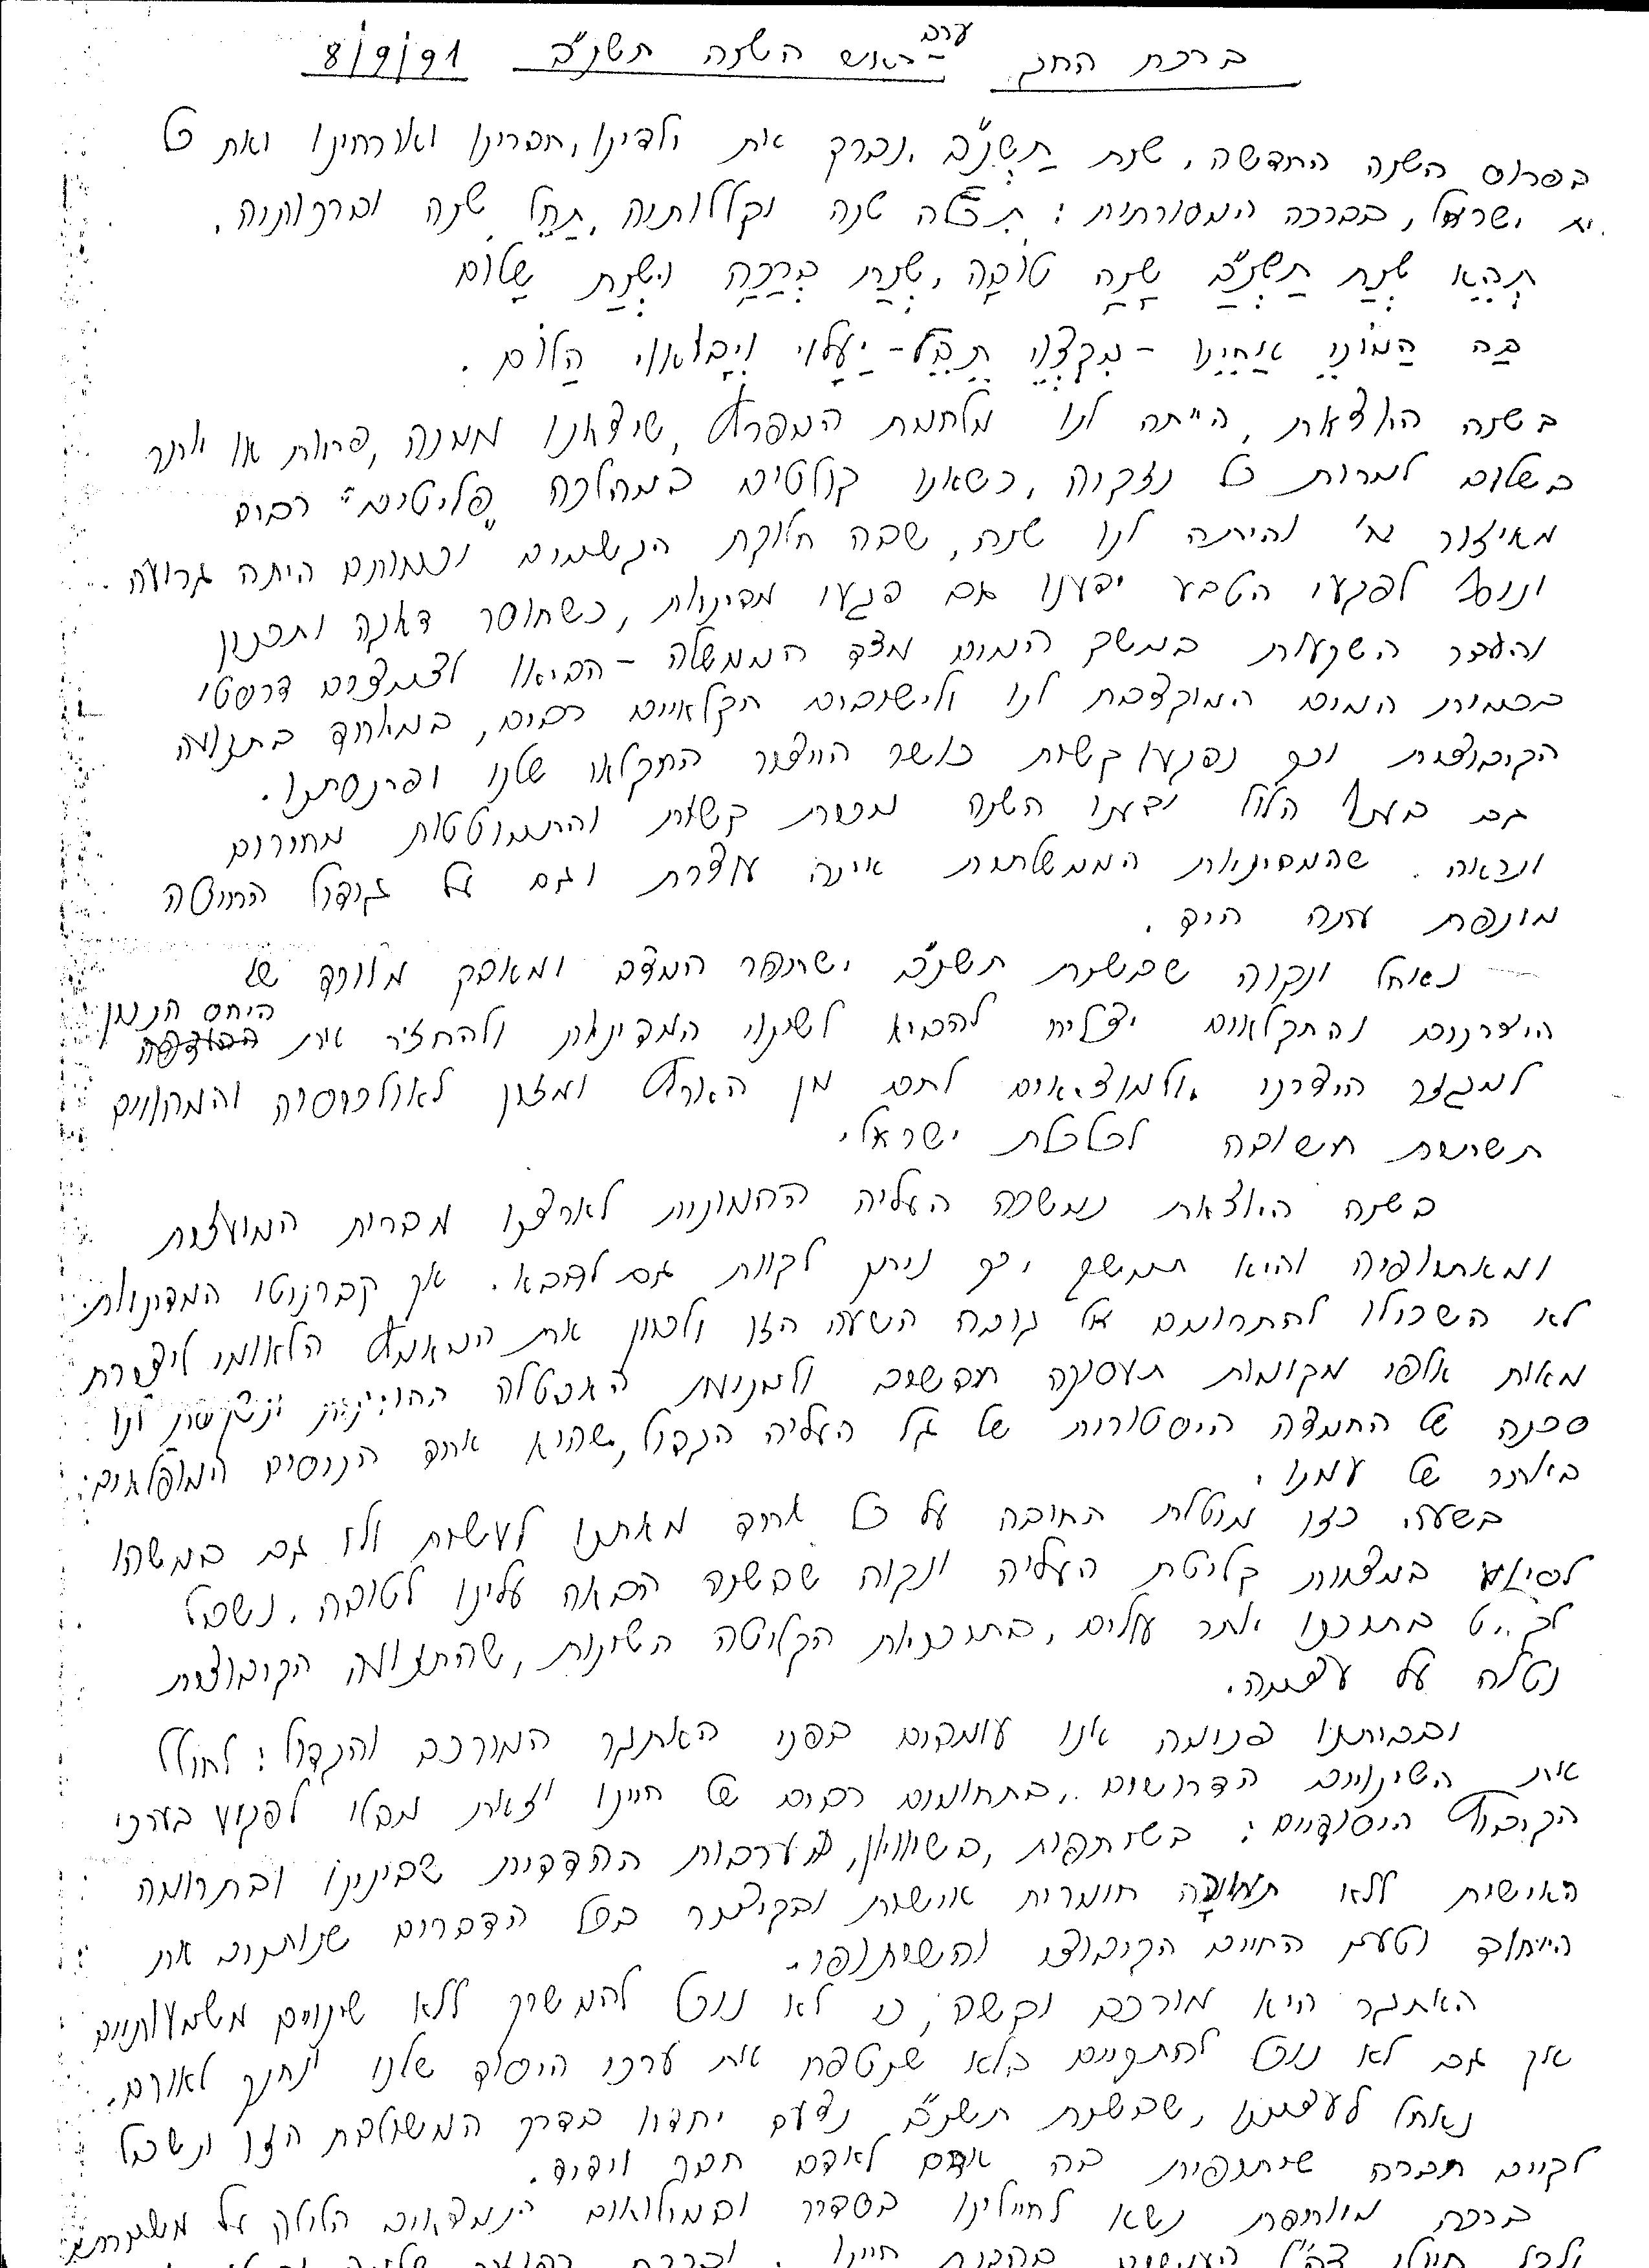 ברכת החג ערב ראש השנה תשנ"ב 8/9/91
בפרוס השנה החדשה, שנת תַשְנַ"ב, נברך את ילדינו, חברינו ואורחינו ואת כל
ישראל, בברכה המסורתית: תִכְלֶה שנה וקללותיה, תָחֵל שנה וברכותיה.
תְהֵא שְנַת תַשְנַ"ב שָנָה טוֹבָה, שְנַת בְרָכָה ושְנַת שָלוֹם
בָה הֲמוֹנֵי אַחֵינוּ - מִקְצְוֵי תֵבֵל - יַעֲלוּ וְיָבוֹאוּ הֲלוֹם.
בשנה היוצאת, הייתה לנו מלחמת המפרץ, שיצאנו ממנה, פחות או יותר
בשלום למרות כל נזקיה, כשאנו קולטים במהלכה "פליטים" רבים
מאיזור והיתה לנו שנה, שבה חלוקת הגשמים וכמותם היתה גרועה.
ונוסף לפגעי הטבע ידענו גם פגעי מדיניות, כשחוסר דאגה ותכנון
והעדר השקעות במשק המים מצד הממשלה - הביאו לצמצום דרסטי
בכמות המים המוקצבת לנו ולישובים חקלאיים רבים, במיוחד בתנועה
הקיבוצית וכך נפגעו קשות כושר הייצור החקלאי שלנו ופרנסתנו.
גם בענף הלול ידענו השנה מכות קשות והתמוטטות מחירים
ונראה. שהמדיניות הממשלתית אינה עוזרת וגם על גידול החיטה
מונפת עתה היד.
נאחל ונקוה שבשנת תשנ"ב ישתפר המצב ומאבק מלוכד של
היצרנים והחקלאים יצליח להביא לשינוי המדיניות ולהחזיר את היחס הנכון
למגזר היצרני ולמוציאים לחם מן הארץ ומזון לאוכלוסיה והמהווים
תשתית חשובה לכלכלת ישראל.
בשנה היוצאת נמשכה העליה ההמונית לארצנו מברית המועצות
ומאתיופיה והיא תימשך, כך ניתן לקוות גם להבא. אך קברניטי המדינה
לא השכילו להתרומם על גובה השעה הזו ולכוון את המאמץ הלאומי ליצירת
מאות אלפי מקומות תעסוקה חדשים ולמניעת האבטלה
סכנה של החמצה היסטורית של גל העליה הגדול, שהיא אחד הניסים המופלאים
באתר של עמנו.
בשעה כזו מוטלת החובה על כל אחד מאתנו לעשות ולו גם במשהו
לסייע במצוות קליטת העליה ונקוה שבשנה הבאה עלינו לטובה, נשכיל
לקלוט בתוכנו יותר עולים, בתוכניות הקליטה השונות, שהתנועה הקיבוצית
נטלה על עצמה.
ובביתנו פנימה אנו עומדים בפני האתגר המורכב והגדול: לחולל
את השינויים הדרושים, בתחומים רבים של חיינו וזאת מבלי לפגוע בערכי
הקיבוץ היסודיים: בשותפות, בשיוויון, בערבות ההדדית שבינינו ובתרומה
האישית ללא תמורה חומרית אישית ובקיצור בכל הדברים שנותנים את
הייחוד וטעם החיים הקיבוצי והשיתופי.
האתגר היא מורכב וקשה, כי לא נוכל להמשיך ללא שינויים משמעותיים
אך גם לא נוכל להתקיים בלא שנטפח את ערכי היסוד שלנו ונחנך לאורם.
נאחל לעצמנו, שבשנת תשנ"ב נצעד יחדיו בדרך המשולבת הזו ונשכיל
לקיים חברה שיתופית בה אדם לאדם חבר וידיד.
ברכה מיוחדת נשא לחיילינו בסדיר ובמילואים הנמצאים הלילה על משמרתם
ולכל חיילי צה"ל